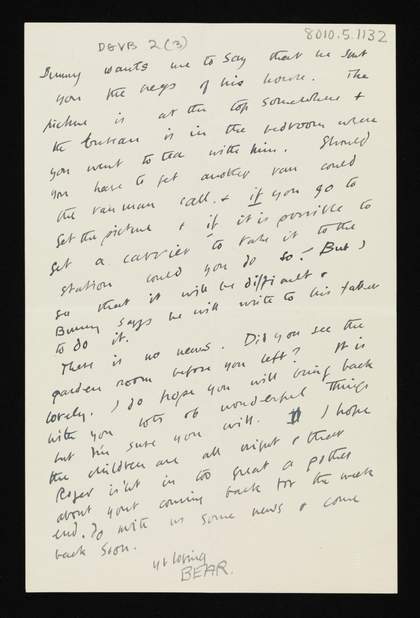 DGVB 2(3)
8010.5.1132
Bunny wants me to say that he sent
you the keys of his house. The
picture is at the top somewhere &
the bureau is in the bedroom where
you went to tea with him. Should
you have to get another van could
the van man call. & if you go to
get the picture & if it is possible to
get a carrier to take it to the
station could you do so! But I
say that it will be difficult &
Bunny says he will write to his father
to do it.
There is no news. Did you see the
garden room before you left? It is
lovely. I do hope you will bring back
with you lots of wonderful things
but I'm sure you will. I hope
the children are all right & that
Roger isn't in too great a pother
about your coming back for the week
end. Do write us some news & come
back soon.
yr loving
BEAR.